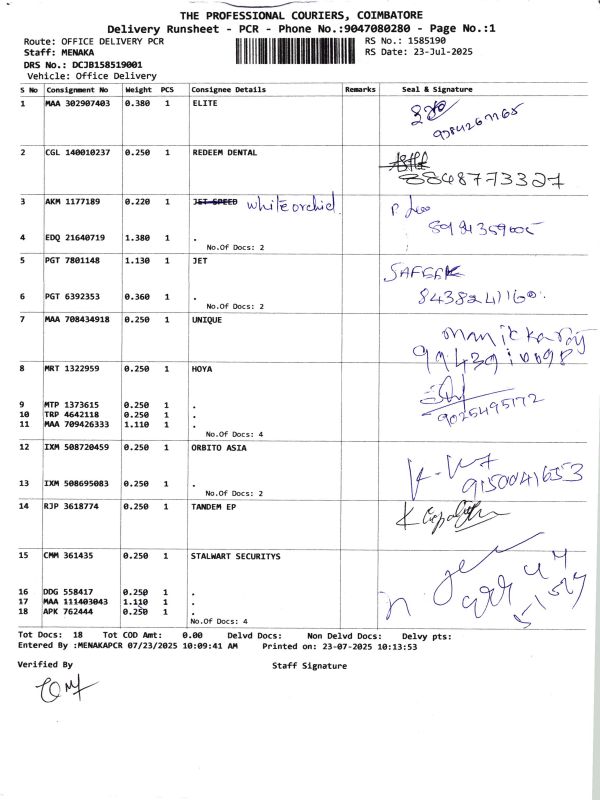 THE PROFESSIONAL COURIERS, COIMBATORE
Delivery Runsheet - PCR - Phone No.:9047080280 - Page No.:1
Route: OFFICE DELIVERY PCR RS No.: 1585190
Staff: MENAKA RS Date: 23-Jul-2025
DRS No.: DCJB158519001
Vehicle: Office Delivery
S No Consignment No Weight PCS Consignee Details Remarks Seal & Signature
1 MAA 302907403 0.380 1 ELITE
2 CGL 140010237 0.250 1 REDEEM DENTAL
8848773327
3 AKM 1177189 0.220 1 JET SPEED White orchid.
4 EDQ 21640719 1.380 1 .
No.Of Docs: 2
5 PGT 7801148 1.130 1 JET
6 PGT 6392353 0.360 1 .
No.Of Docs: 2
7 MAA 708434918 0.250 1 UNIQUE
8 MRT 1322959 0.250 1 HOYA
9 MTP 1373615 0.250 1 .
10 TRP 4642118 0.250 1 .
11 MAA 709426333 1.110 1 .
9025495172
No.Of Docs: 4
12 IXM 508720459 0.250 1 ORBITO ASIA
9150041653
13 IXM 508695083 0.250 1 .
No.Of Docs: 2
14 RJP 3618774 0.250 1 TANDEM EP
15 CMM 361435 0.250 1 STALWART SECURITYS
16 DDG 558417 0.250 1 .
17 MAA 111403043 1.110 1 .
18 APK 762444 0.250 1 .
No.Of Docs: 4
Tot Docs: 18 Tot COD Amt: 0.00 Delvd Docs: Non Delvd Docs: Delvy pts:
Entered By :MENAKAPCR 07/23/2025 10:09:41 AM Printed on: 23-07-2025 10:13:53
Verified By Staff Signature